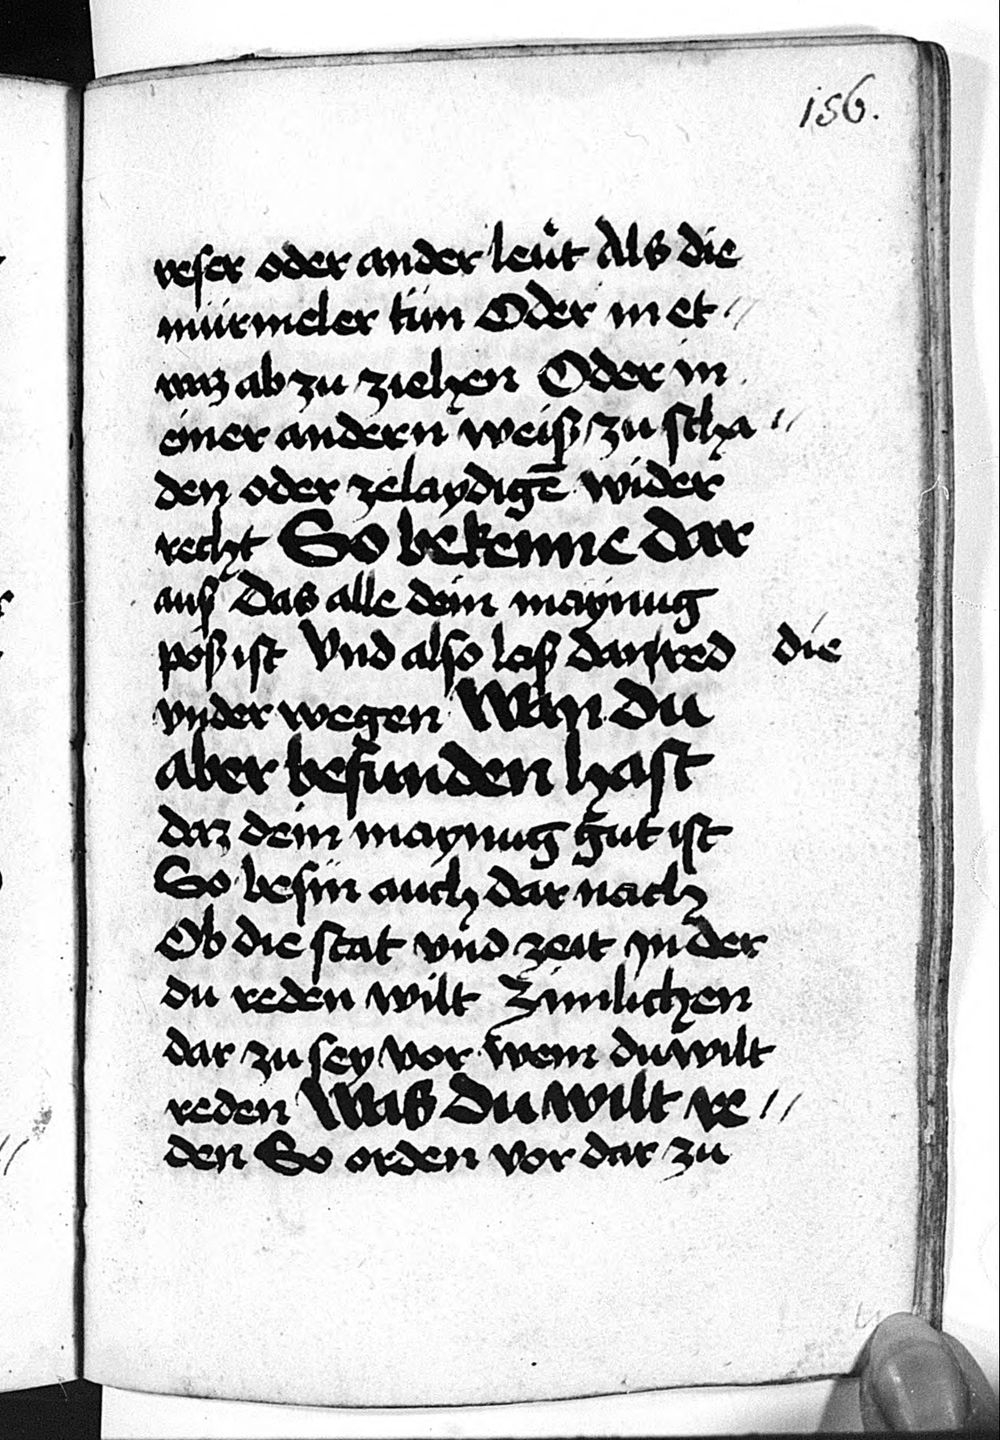 156.
reser oder ander leüt Als die
mürmeler tün Oder in et //
waz ab zu ziehen Oder in
einer andern weiß zu scha //
den oder zelaydigē wider
recht So bekenne dar
auß Das alle dein maynug
pöß ist Vnd also laß dan red die
vnder wegen Wan du
aber befunden hast
daz dein maynug gut ist
So besin auch dar nach
Ob die stat vnd zeit yn der
du reden wilt Zimlichen
dar zu sey vor wem du wilt
reden Was du wilt re //
den So orden vor dar zu